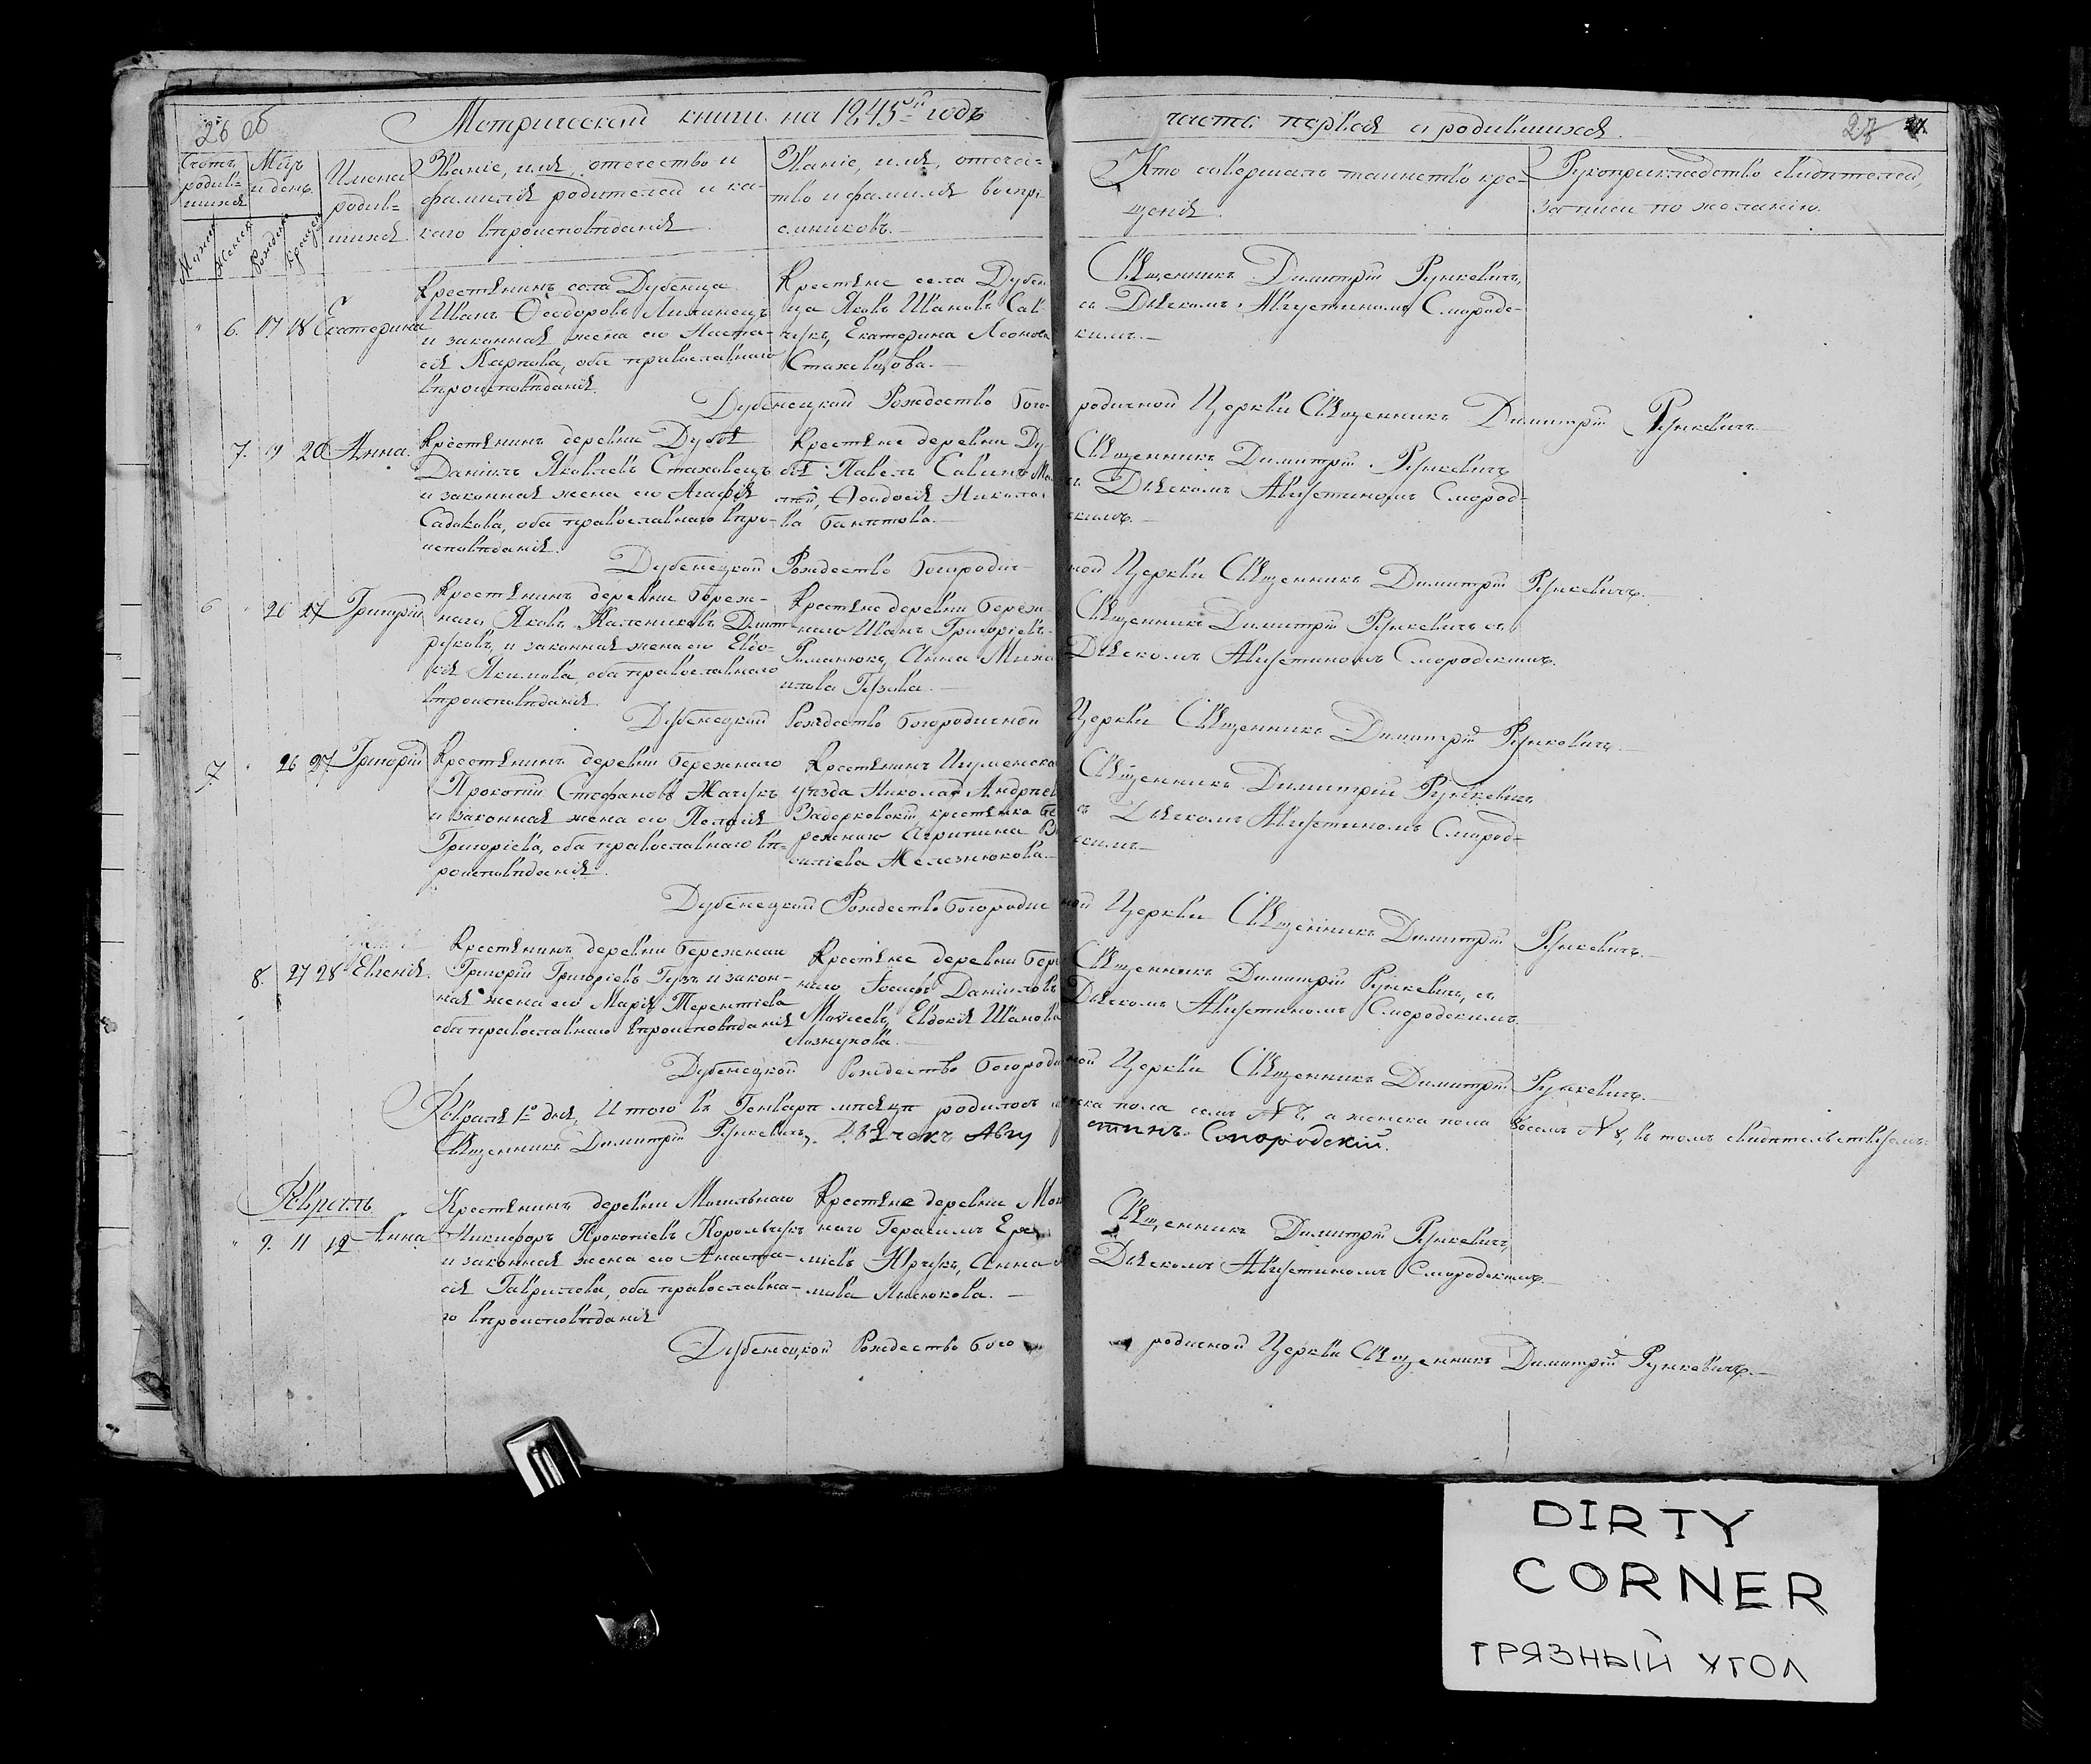 26 об
Метрической книги на 1845й годъ
часть первая о родившихся.
27
Счетъ родив=шихся
Мцъ и день.
Имена родив=шихся.
Званіе, имя, отечество и фамилія родителей и ка=каго вѣроисповѣданія
Званіе, имя, отече=ство и фамилія воспрі емниковъ.
Кто совершалъ таинство кре=щенія.
Рукоприкладство свидѣтелей, записи по желанію.
6. 17 18 Екатерина
Крестянинъ села Дубенца
Иванъ Ѳеодоровъ Литинецъ
и законная жена его Настa-
сія Карпова, оба православнаго
вѣроисповѣданія.
Крестяне села Дубен
ца Яковъ Ивановъ Сав-
чукъ, Екатерина Леонова
Стаховцова.—
Священникъ Димитрій Рункевичъ,
съ Дьякомъ Августиномъ Смородс-
кимъ.—
Дубенецкой Рождество Бого-
родичной Церкви Священникъ Димитрій Рункевичъ.—
7. 19 20 Анна.
Крестянинъ деревни Дубья
Даніилъ Яковлевъ Стаховецъ
и законная жена его Агафія
Садокова, оба православнаго вѣро-
исповѣданія.
Крестяне деревни Ду-
бья Павелъ Савинъ
Ѳеодосія Николае
ва
Священникъ Димитрій Рункевичъ
съ Дьякомъ Августиномъ Смород-
скимъ.—
Дубенецкой Рождество Богородич-
ной Церкви Священникъ Димитрій Рункевичъ.—
6 26 27 Григорій
Крестянинъ деревни Береж-
наго Яковъ Калениковъ Дмит-
руковъ, и законная жена его Евдо-
кія Якимова, оба православнаго
вѣроисповѣданія.
Крестяне деревни Береж-
наго Иванъ Григоріевъ
Романюкъ, Анна Миха
илова Гузова.—
Священникъ Димитрій Рункевичъ съ
Дьякомъ Августиномъ Смородскимъ.
Дубенецкой Рождество Богородичной
Церкви Священникъ Димитрій Рункевичъ.—
7. 26 27. Григорій
Крестянинъ деревни Бережнаго
Прокопій Стефановъ Жачукъ
и законная жена его Пелагія
Григоріева, оба православнаго вѣ-
роисповѣданія.
Крестянинъ Игуменска
уѣзда Николай Андрѣев
Задерковскій крестянка Бе
режнаго Агрипина Ва
силіева Железнюкова.—
Священникъ Димитрій Рункевичъ
съ Дьякомъ Августиномъ Смород-
скимъ—
Дубенецкой Рождество Богородич
ной Церкви Священникъ Димитрій Рункевичъ.—
8. 27 28 Евгенія.
Крестянинъ деревни Бережнаго
Григорій Григоріевъ Гузъ и закон-
ная жена его Марія Терентіева
оба православнаго вѣроисповѣданія
Крестяне деревни Береж
наго Іосифъ Даніиловъ
Моѵсеевъ, Евдокія Иванова
Лознухова.—
Священникъ Димитрій Рункевичъ, съ
Дьякомъ Августиномъ Смородскимъ.
Дубенецкой Рождество Богородич
ной Церкви Священникъ Димитрій Рункевичъ.—
Февраля 1го дня, Итого въ Генварѣ мѣсяцѣ родилось мужеска пола семь № 7, а женска пола восемь № 8, въ томъ свидѣтельствуемъ:
Священникъ Димитрій Рункевичъ, Дьячекъ Августинъ Смородскій.
Февраль
9. 11 12 Анна
Крестянинъ деревни Могильнаго
Никифоръ Прокопіевъ Корольчукъ
и законная жена его Анаста-
сія Гаврилова, оба православна-
го вѣроисповѣданія
Крестяне деревни Моги
наго Герасимъ Ере
міевъ Юрчукъ, Анна
Лисюкова.—
Священникъ Димитрій Рункевичъ,
съ Дьякомъ Августиномъ Смородскимъ.—
Дубенецкой Рождество Бого
родичной Церкви Священникъ Димитрій Рункевичъ.—
DIRTY
CORNER
ГРЯЗНЫЙ УГОЛ